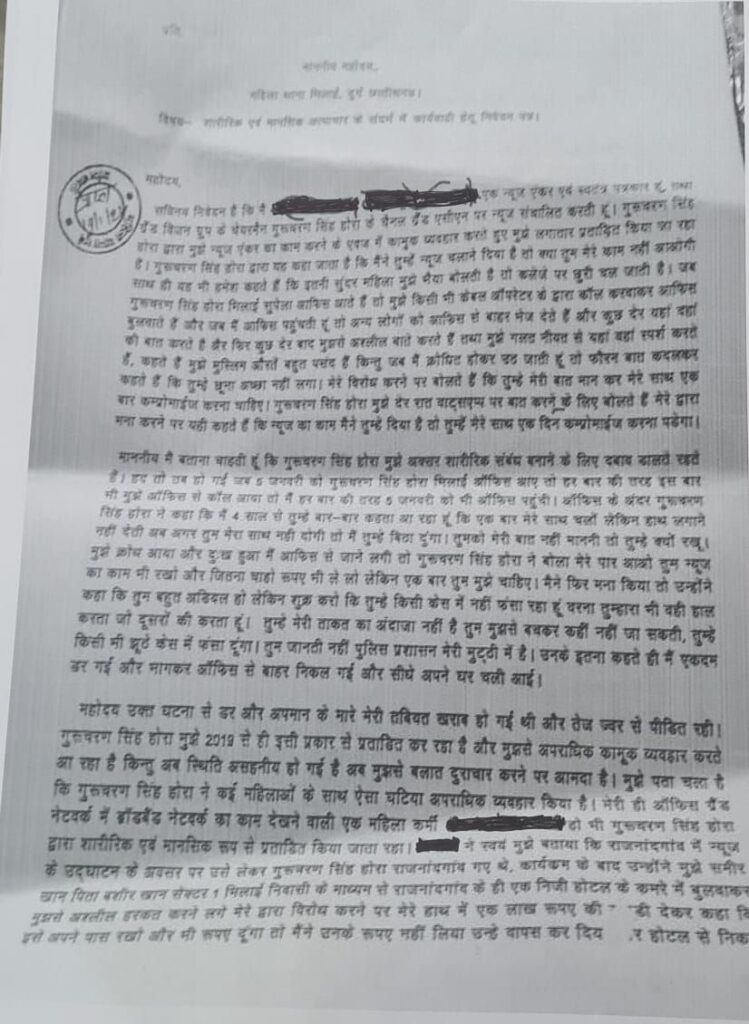 प्रति
माननीय महोदय,,
महिला थाना भिलाई, दुर्ग छत्तीसगढ़।
विषय– शारीरिक एवं मानसिक अत्याचार के संदर्भ में कार्यवाही हेतु निवेदन पत्र।
महोदय,
सविनय निवेदन है कि मैं एक न्यूज एंकर एवं स्वतंत्र पत्रकार हूं, तथा
ग्रैंड विजन ग्रुप के चेयरमैन गुरूचरण सिंह होरा के चैनल ग्रैंड एसीएन पर न्यूज संचालित करती हूं। गुरूचरण सिंह
होरा द्वारा मुझे न्यूज एंकर का काम करने के एवज में कामुक व्यवहार करते हुए मुझे लगातार प्रताडित किया जा रहा
है। गुरूचरण सिंह होरा द्वारा यह कहा जाता है कि मैंने तुम्हें न्यूज चलाने दिया है तो क्या तुम मेरे काम नहीं आओगी
साथ ही यह भी हमेशा कहते हैं कि इतनी सुंदर महिला मुझे भैया बोलती है तो कलेजे पर छुरी चल जाती है। जब
गुरूचरण सिंह होरा भिलाई सुपेला आफिस आते हैं तो मुझे किसी भी केबल ऑपरेटर के द्वारा कॉल करवाकर आफिस
बुलवाते हैं और जब मैं आफिस पहुंचती हूं तो अन्य लोगों को आफिस से बाहर भेज देते हैं और कुछ देर यहां वहां
की बात करते है और फिर कुछ देर बाद मुझसे अश्लील बाते करते हैं तथा मुझे गलत नीयत से यहां वहां स्पर्श करते
हैं, कहते हैं मुझे मुस्लिम औरतें बहुत पसंद हैं किन्तु जब मैं क्रोधित होकर उठ जाती हूं तो फौरन बात बदलकर
कहते हैं कि तुम्हे छूना अच्छा नहीं लगा। मेरे विरोध करने पर बोलते हैं कि तुम्हे मेरी बात मान कर मेरे साथ एक
बार कम्प्रोमाईज करना चाहिए। गुरूचरण सिंह होरा मुझे देर रात वाट्सएप्प पर बात करने के लिए बोलते हैं मेरे द्वारा
मना करने पर यही कहते हैं कि न्यूज का काम मैंने तुम्हें दिया है तो तुम्हें मेरे साथ एक दिन कम्प्रोमाईज करना पडेगा।
माननीय मैं बताना चाहती हूं कि गुरूचरण सिंह होरा मुझे अक्सर शारीरिक संबंध बनाने के लिए दबाव डालते रहते
हैं। हद तो तब हो गई जब 5 जनवरी को गुरूचरण सिंह होरा भिलाई ऑफिस आए तो हर बार की तरह इस बार
भी मुझे ऑफिस से कॉल आया तो मैं हर बार की तरह 5 जनवरी को भी ऑफिस पहुंची। ऑफिस के अंदर गुरूचरण
सिंह होरा ने कहा कि मैं 4 साल से तुम्हे बार–बार कहता आ रहा हूं कि एक बार मेरे साथ चलों लेकिन हाथ लगाने
नहीं देती अब अगर तुम मेरा साथ नही दोगी तो मैं तुम्हें बिठा दुंगा। तुमको मेरी बात नहीं माननी तो तुम्हें क्यों रखू।
मुझे क्रोध आया और दुःख हुआ मैं आफिस से जाने लगी तो गुरूचरण सिंह होरा ने बोला मेरे पार आओ तुम न्यूज
का काम भी रखो और जितना चाहो रूपए भी ले लो लेकिन एक बार तुम मुझे चाहिए। मैंने फिर मना किया तो उन्होंने
कहा कि तुम बहुत अडियल हो लेकिन शुक्र करो कि तुम्हे किसी केस में नहीं फंसा रहा हूं वरना तुम्हारा भी वही हाल
करता जो दूसरों की करता हूं। तुम्हे मेरी ताकत का अंदाजा नहीं है तुम मुझसे बचकर कहीं नहीं जा सकती, तुम्हे
किसी भी झूठे केस में फंसा दूंगा। तुम जानती नहीं पुलिस प्रशासन मेरी मुट्ठी में है। उनके इतना कहते ही मैं एकदम
डर गई और भागकर ऑफिस से बाहर निकल गई और सीधे अपने घर चली आई।
महोदय उक्त घटना से डर और अपमान के मारे मेरी तबियत खराब हो गई थी और तेज ज्वर से पीडित रही।
गुरूचरण सिंह होरा मुझे 2019 से ही इसी प्रकार से प्रताडित कर रहा है और मुझसे अपराधिक कामूक व्यवहार करते
आ रहा है किन्तु अब स्थिति असहनीय हो गई है अब मुझसे बलात दुराचार करने पर आमदा है। मुझे पता चला है
कि गुरूचरण सिंह होरा ने कई महिलाओं के साथ ऐसा घटिया अपराधिक व्यवहार किया है। मेरी ही ऑफिस ग्रैंड
नेटवर्क में ब्रॉडबैंड नेटवर्क का काम देखने वाली एक महिला कर्मी को भी गुरूचरण सिंह होरा
द्वारा शारीरिक एवं मानसिक रूप से प्रताडित किया जाता रहा। ने स्वयं मुझे बताया कि राजनांदगांव में न्यूज
के उद्घाटन के अवसर पर उसे लेकर गुरूचरण सिंह होरा राजनांदगांव गए थे, कार्यकम के बाद उन्होंने मुझे समीर
खान पिता बशीर खान सेक्टर 1 भिलाई निवासी के माध्यम से राजनांदगांव के ही एक निजी होटल के कमरे में बुलवाकर
मुझसे अश्लील हरकत करने लगे मेरे द्वारा विरोध करने पर मेरे हाथ में एक लाख रूपए की डी देकर कहा कि
इसे अपने पास रखो और भी रूपए दूंगा तो मैंने उनके रूपए नहीं लिया उन्हे वापस कर दिय र होटल से निक